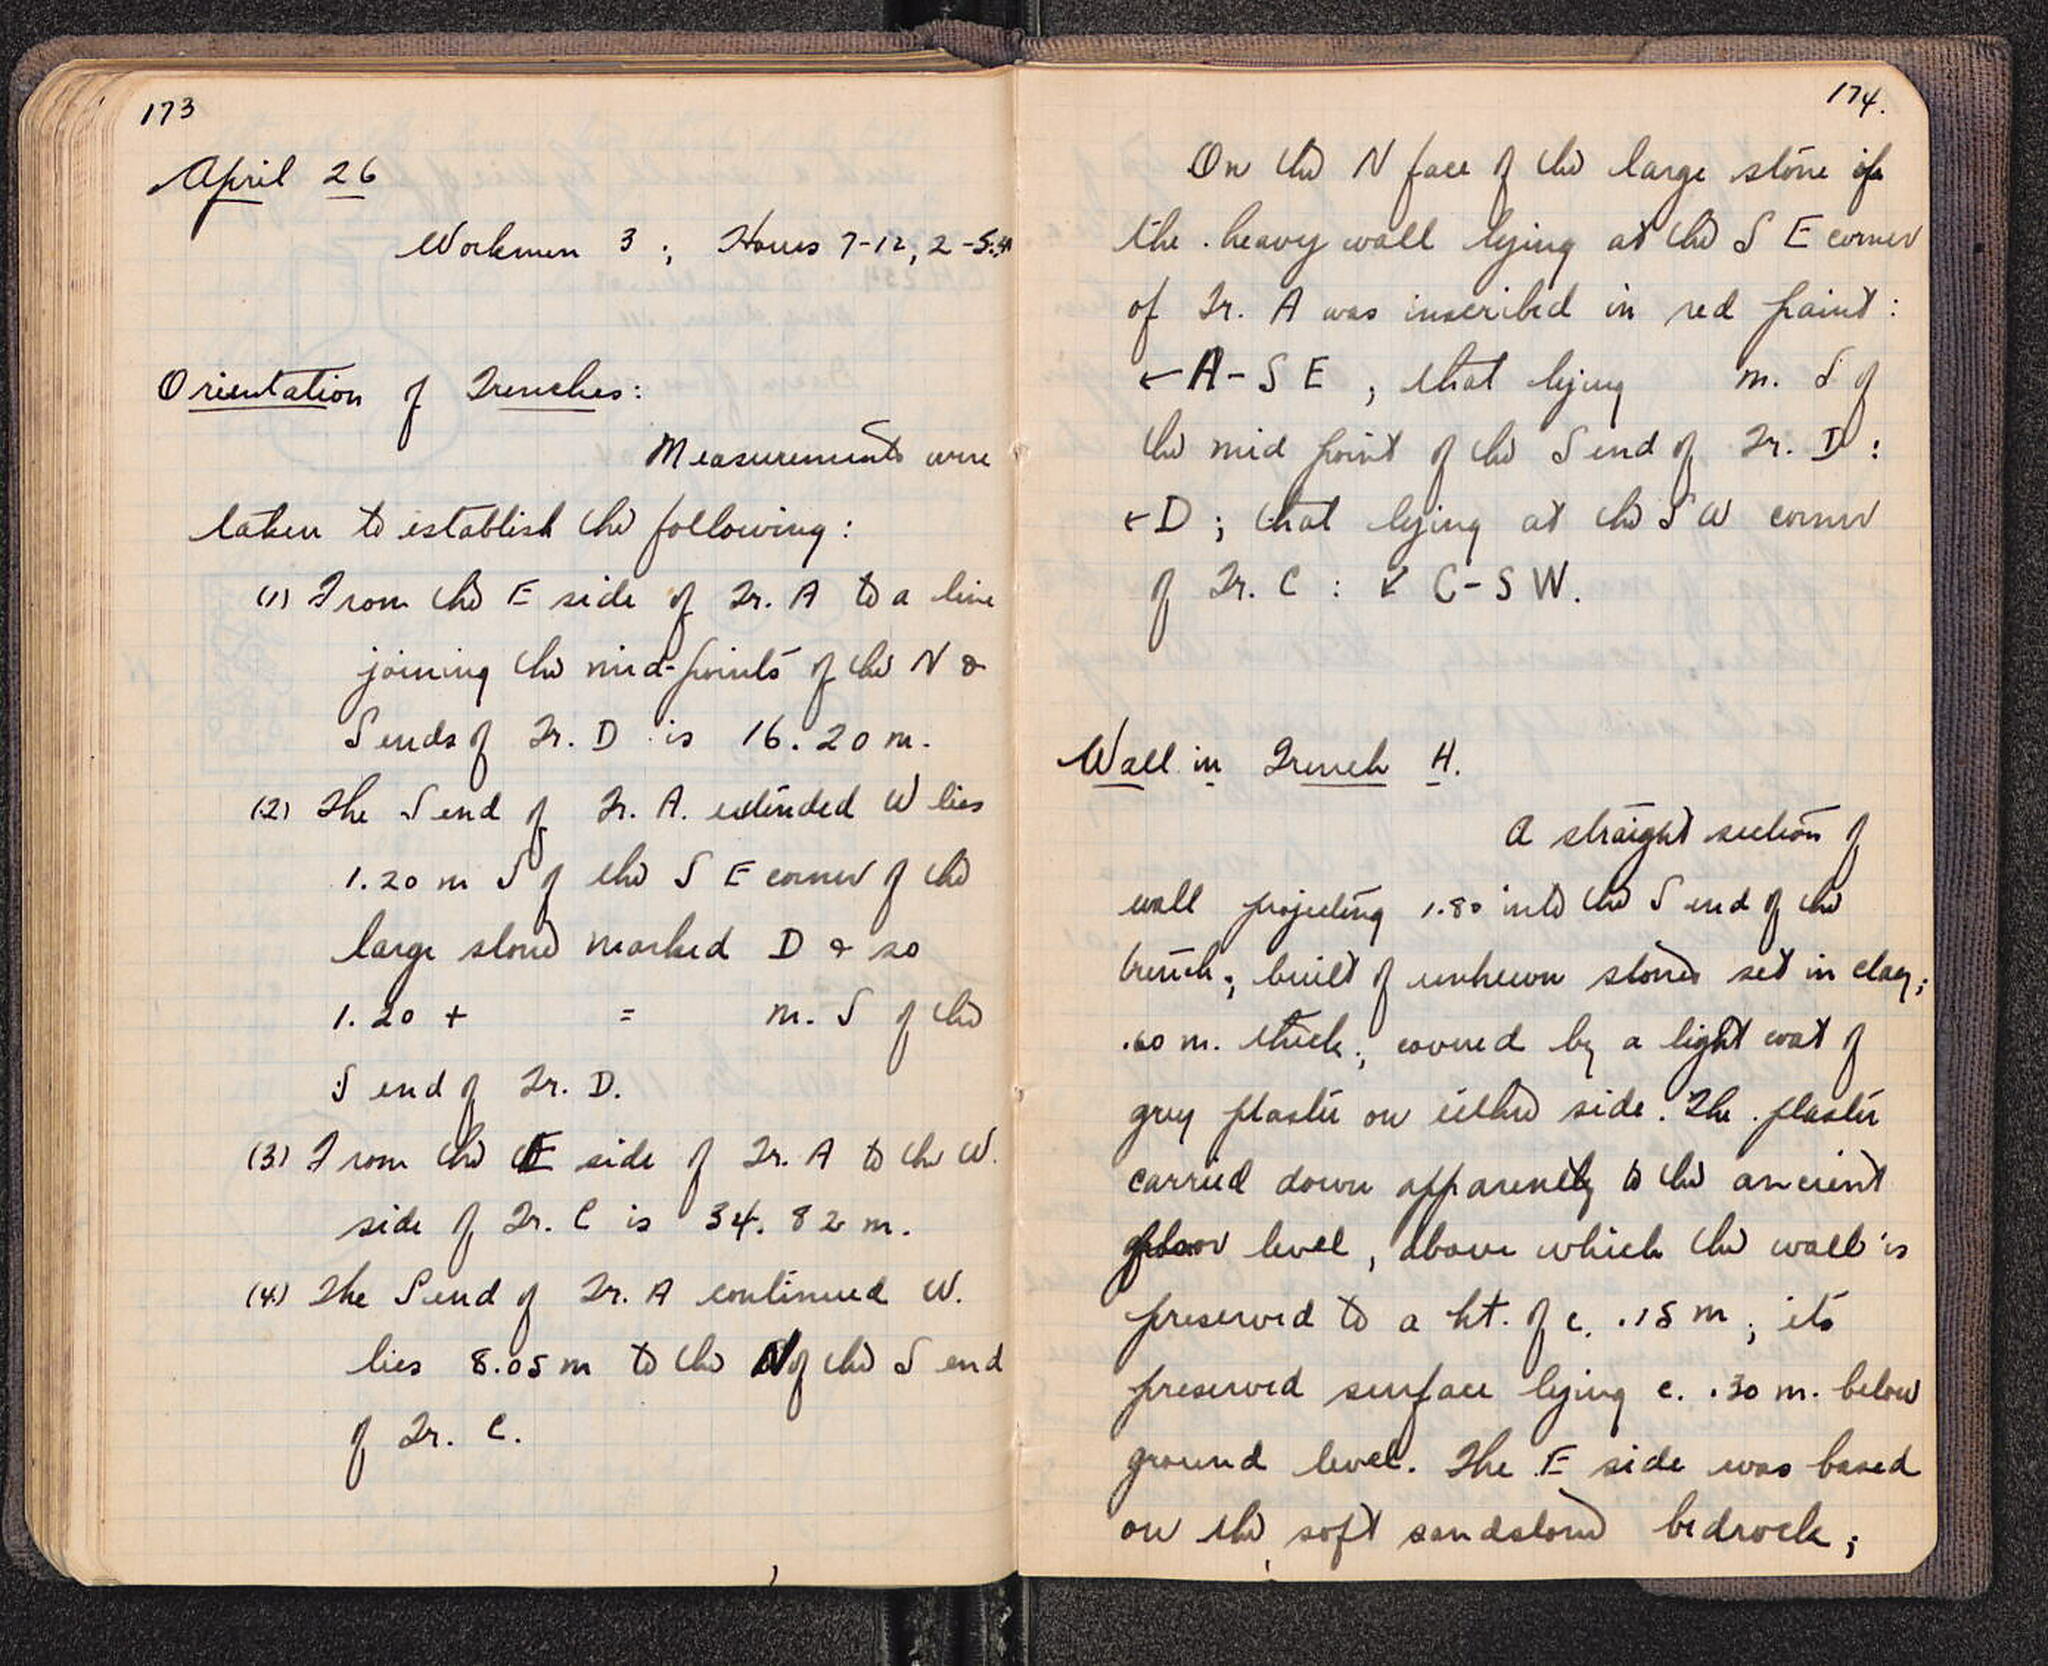 173
April 26
Workmen 3 ; Hours 7-12, 2-5:
Orientation of Trenches:
Measurements were
taken to establish the following:
(1) From the E side of Tr. A to a line
joining the mid-points of the N &
S ends of Tr. D is 16.20 m.
(2) The S end of Tr. A. extended W lies
1.20 m S of the S E corner of the
large stone marked D & so
1.20 + = m. S of the
S end of Tr. D.
(3) From the E side of Tr. A to the W.
side of Tr. C is 34.82 m.
(4) The S end of Tr. A continued W.
lies 8.05 m to the N of the S end
of Tr. C.
174.
On the N face of the large stone of
the heavy wall lying at the S E corner
of Tr. A was inscribed in red paint:
← A-S E ; that lying m. S of
the mid point of the S end of Tr. D :
← D ; that lying at the S W corner
of Tr. C : ↙ C-S W.
Wall in Trench H.
A straight section of
wall projecting 1.80 into the S end of the
trench; built of unhewn stones set in clay;
.60 m. thick; covered by a light coat of
grey plaster on either side. The plaster
carried down apparently to the ancient
floor level, above which the wall is
preserved to a ht. of c. .15 m; its
preserved surface lying c. .30 m. below
ground level. The E side was based
on the soft sandstone bedrock;